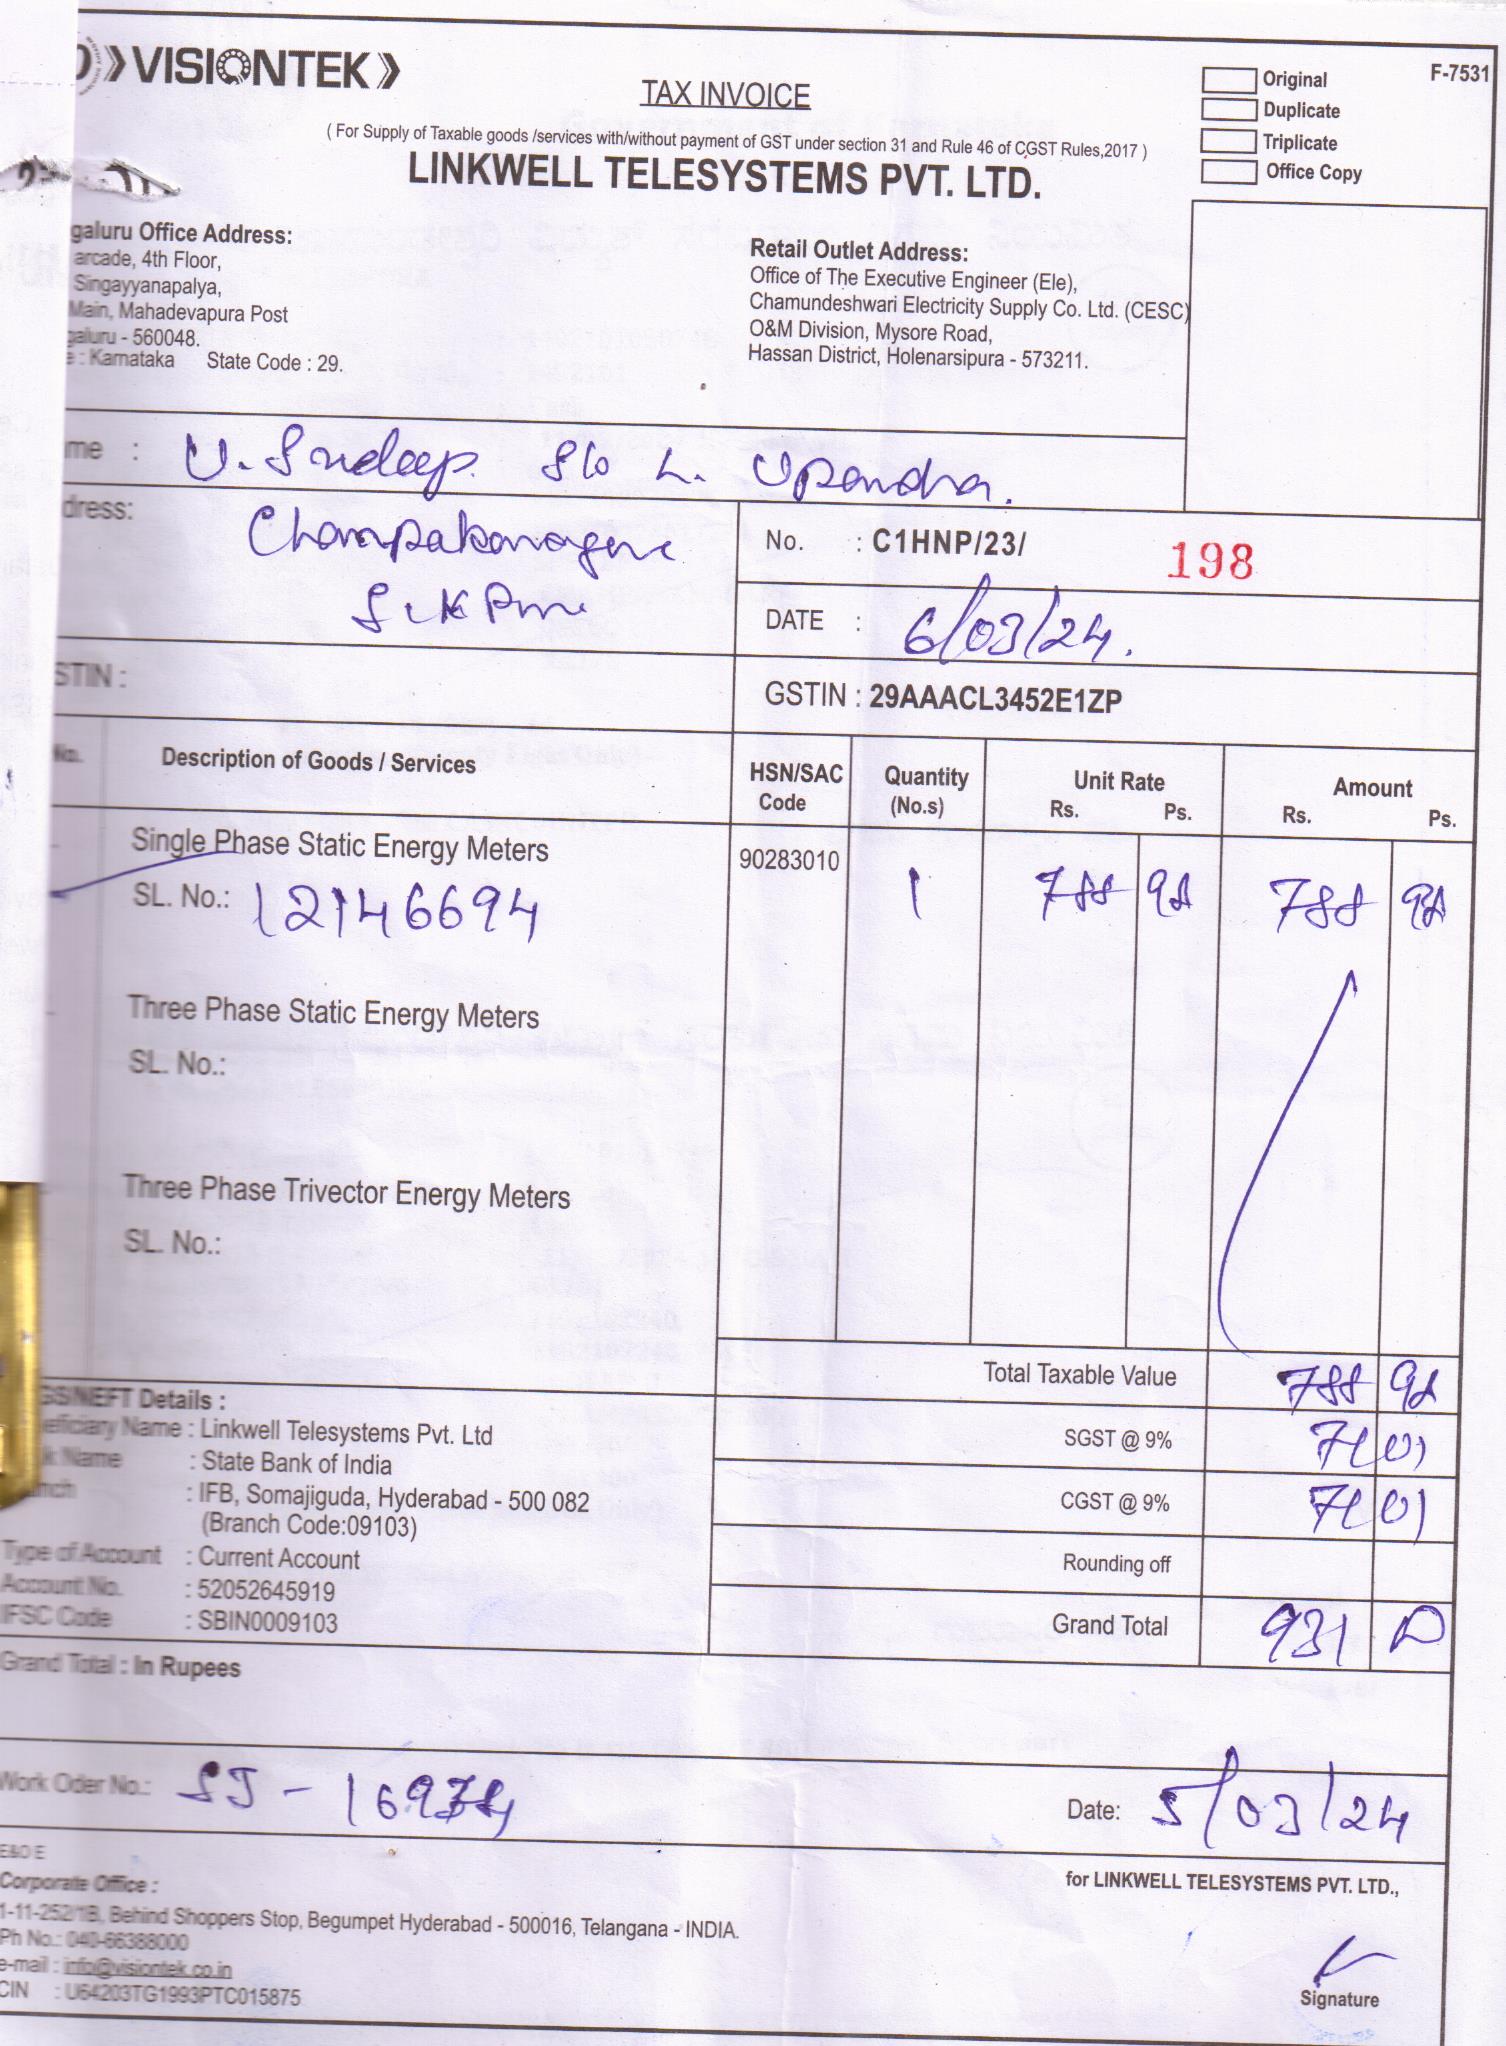 VISIONTEK
F-7531
TAX INVOICE
Original
Duplicate
Triplicate
Office Copy
( For Supply of Taxable goods /services with/without payment of GST under section 31 and Rule 46 of CGST Rules,2017 )
LINKWELL TELESYSTEMS PVT. LTD.
galuru Office Address:
arcade, 4th Floor,
Singayyanapalya,
Main, Mahadevapura Post
galuru - 560048.
e : Karnataka State Code : 29.
Retail Outlet Address:
Office of The Executive Engineer (Ele),
Chamundeshwari Electricity Supply Co. Ltd. (CESC)
O&M Division, Mysore Road,
Hassan District, Holenarsipura - 573211.
me : U. Sudeep S/o L. Upendra.
dress:
No. : C1HNP/23/ 198
DATE : 6/03/24.
STIN :
GSTIN : 29AAACL3452E1ZP
No. Description of Goods / Services HSN/SAC Code Quantity (No.s) Unit Rate Rs. Ps. Amount Rs. Ps.
Single Phase Static Energy Meters 90283010 1 788 98 788 98
SL. No.: 12146694
Three Phase Static Energy Meters
SL. No.:
Three Phase Trivector Energy Meters
SL. No.:
Total Taxable Value 788 98
SGST @ 9% 71 01
CGST @ 9% 71 01
Rounding off
Grand Total 931
GS/NEFT Details :
eficiary Name : Linkwell Telesystems Pvt. Ltd
k Name : State Bank of India
nch : IFB, Somajiguda, Hyderabad - 500 082
(Branch Code:09103)
Type of Account : Current Account
Account No. : 52052645919
IFSC Code : SBIN0009103
Grand Total : In Rupees
Work Oder No.:
Date: 5/03/24
E&O E
Corporate Office :
1-11-252/1B, Behind Shoppers Stop, Begumpet Hyderabad - 500016, Telangana - INDIA.
Ph No.: 040-66388000
e-mail : info@visiontek.co.in
CIN : U64203TG1993PTC015875
for LINKWELL TELESYSTEMS PVT. LTD.,
Signature